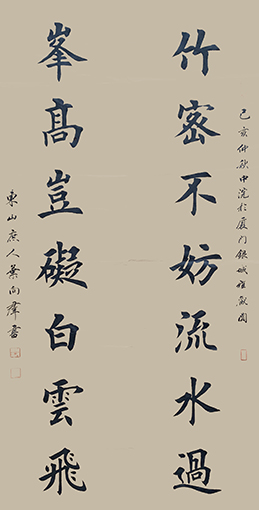 竹密不妨流水過
己亥仲秋中浣於廈门银城佳園
峯高豈礙白雲飛
東山庶人葉向群書